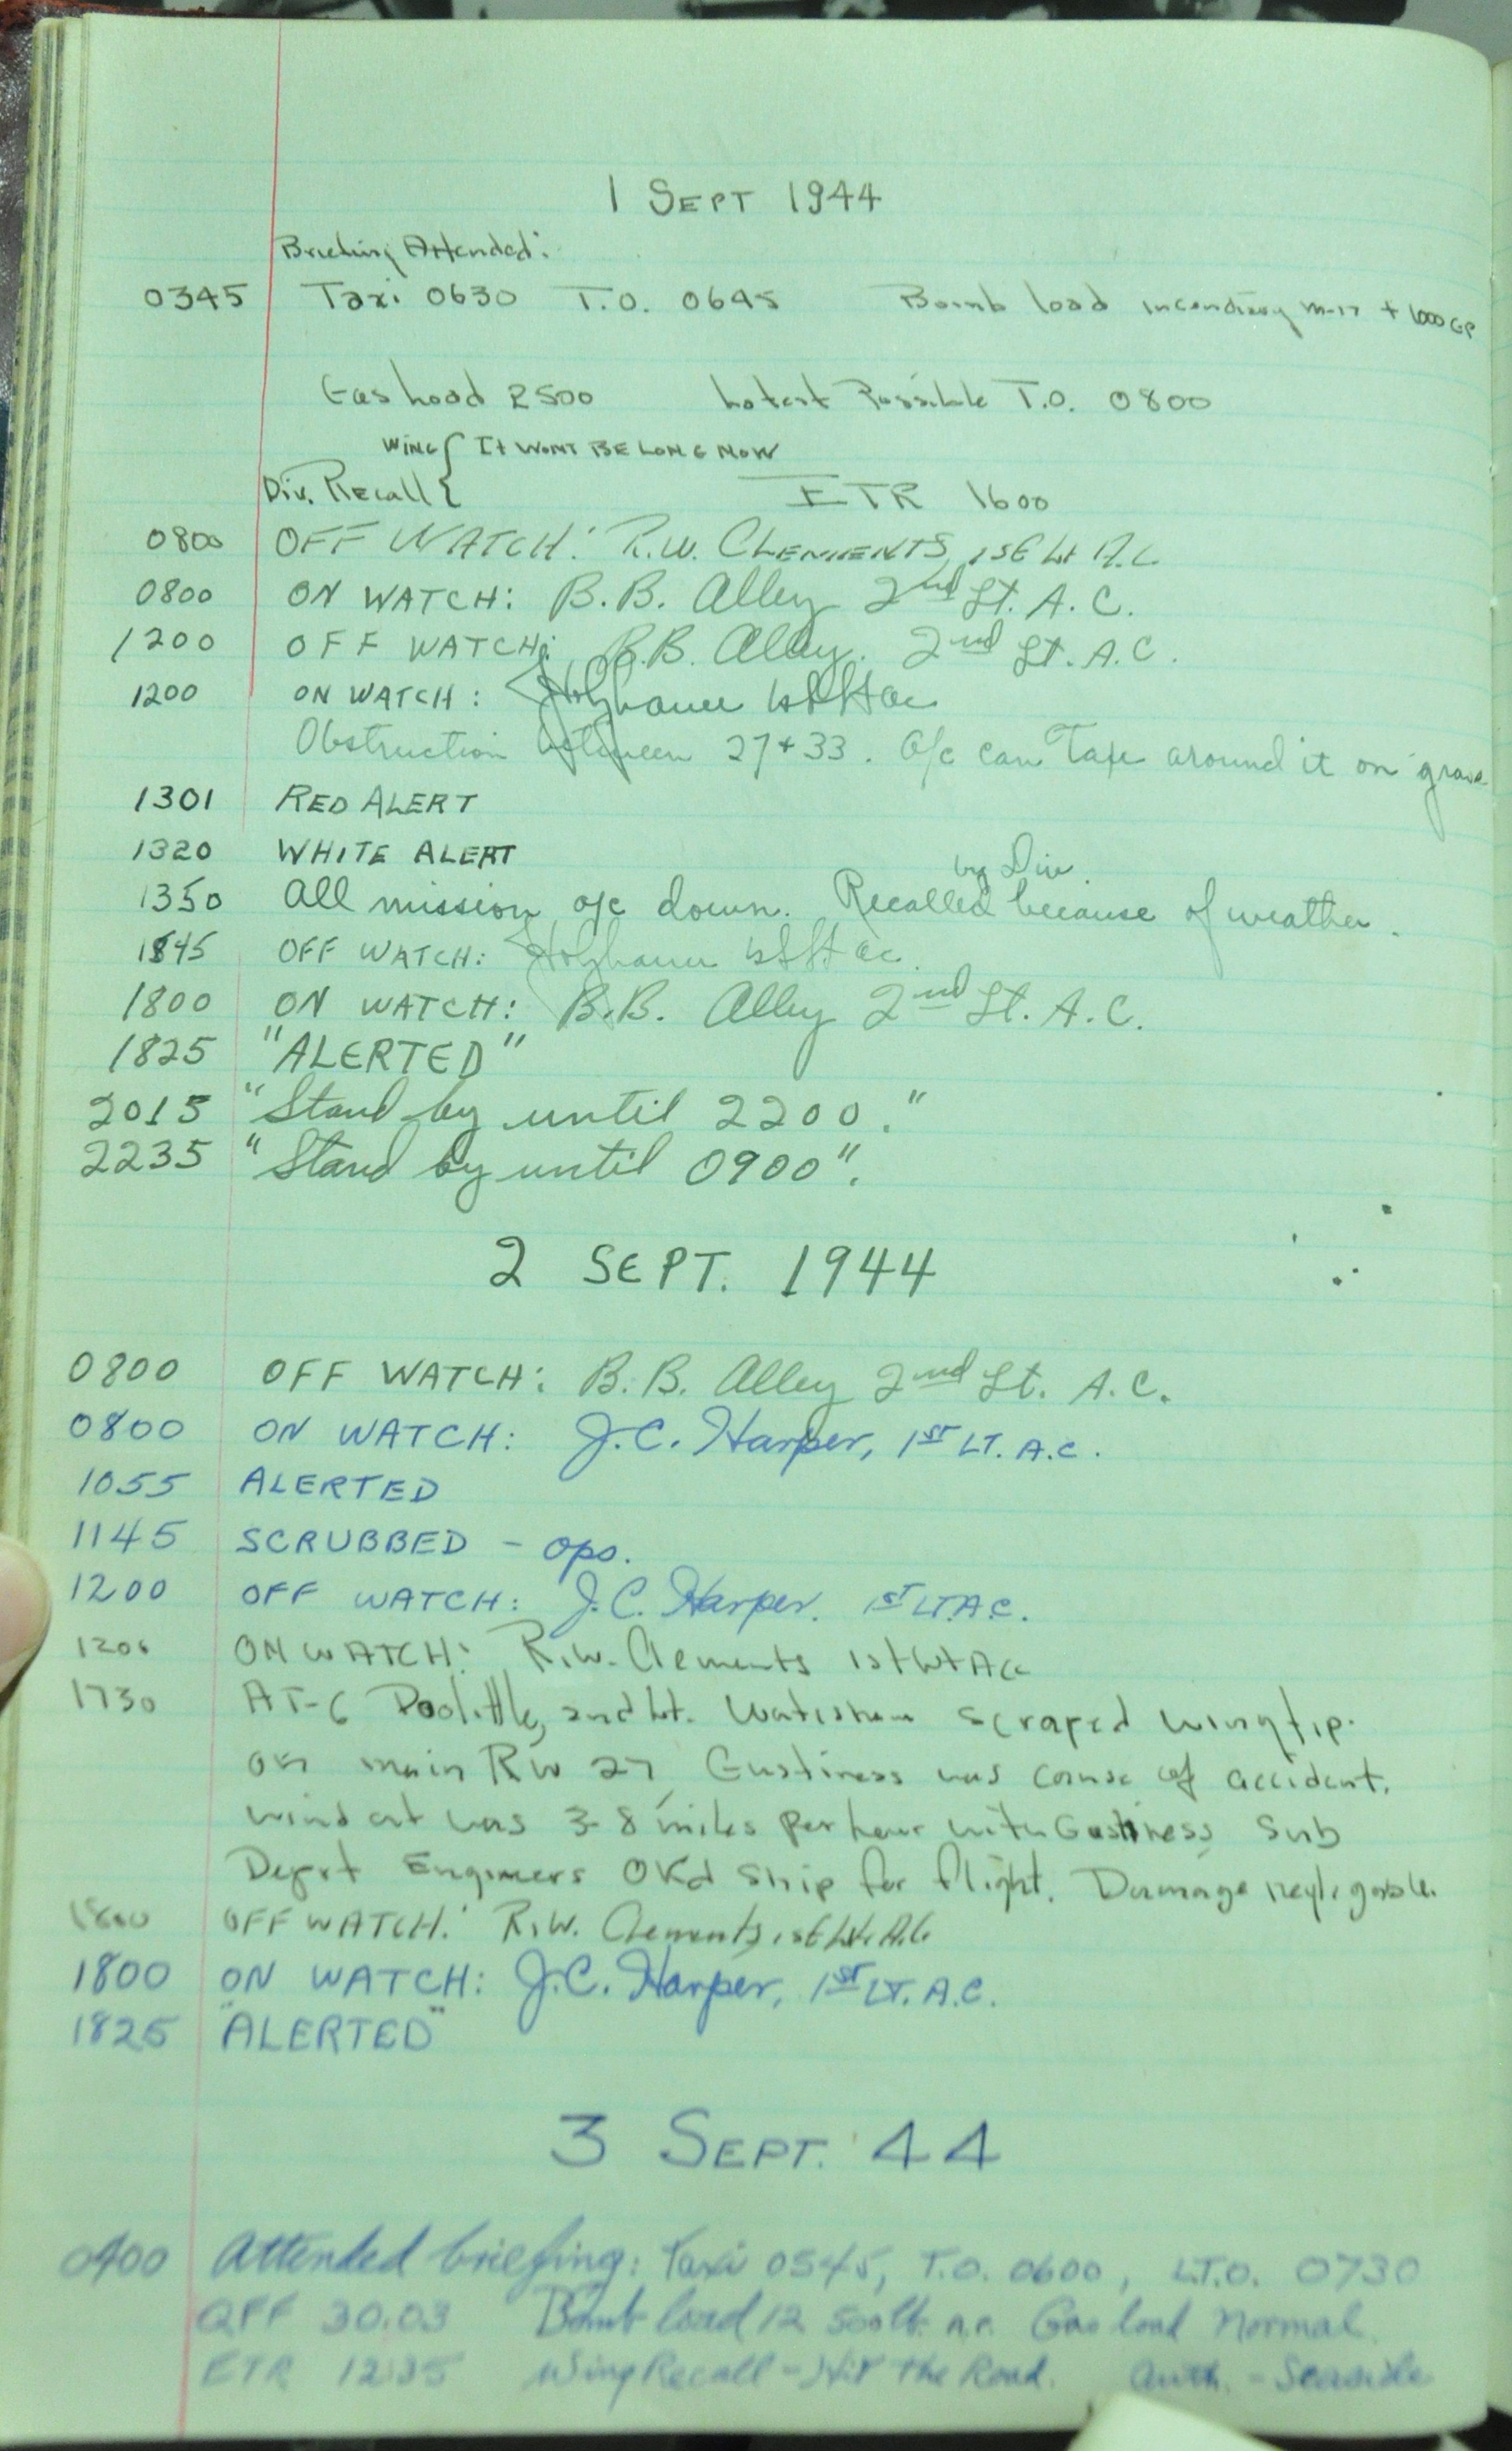 1 SEPT 1944
Briefing Attended:
0345 Taxi 0630 T.O. 0645 Bomb load incendiary M-17 + 1000 GP
Gas Load 2500 Latest Possible T.O. 0800
WING { It WONT BE LONG NOW
Div. Recall { ETR 1600
0800 OFF WATCH: R.W. CLEMENTS, 1st Lt A.C.
0800 ON WATCH: B.B. Alley 2nd Lt. A.C.
1200 OFF WATCH: B.B. Alley. 2nd Lt. A.C.
1200 ON WATCH: Holzhauer 1st Lt ac
Obstruction between 27 + 33. A/c can Taxi around it on
1301 RED ALERT
1320 WHITE ALERT
by Div.
1350 All mission a/c down. Recalled because of weather.
1845 OFF WATCH: Holzhauer 1st Lt ac.
1800 ON WATCH: B.B. Alley 2nd Lt. A.C.
1825 "ALERTED"
2015 "Stand by until 2200."
2235 "Stand by until 0900".
2 SEPT. 1944
0800 OFF WATCH: B.B. Alley 2nd Lt. A.C.
0800 ON WATCH: J.C. Harper, 1ST LT. A.C.
1055 ALERTED
1145 SCRUBBED - ops.
1200 OFF WATCH: J.C. Harper. 1ST LT. A.C.
1200 ON WATCH: R.W. Clements 1st Lt AC
1730 AT-6 Doolittle, and Lt. scraped wingtip.
on main RW 27, Gustiness was cause of accident.
wind at was 3-8 miles per hour with Gustiness, Sub
Depot Engineers OKd ship for flight. Damage negligable.
1800 OFF WATCH: R.W. Clements, 1st Lt. A.C.
1800 ON WATCH: J.C. Harper, 1ST LT. A.C.
1825 "ALERTED"
3 SEPT. 44
0400 Attended briefing: Taxi 0545, T.O. 0600, L.T.O. 0730
QFF 30.03 Bomb load 12 500 lb. Gas load Normal.
ETR 1235 Wing Recall - Hit the Road. Auth. - Seaside